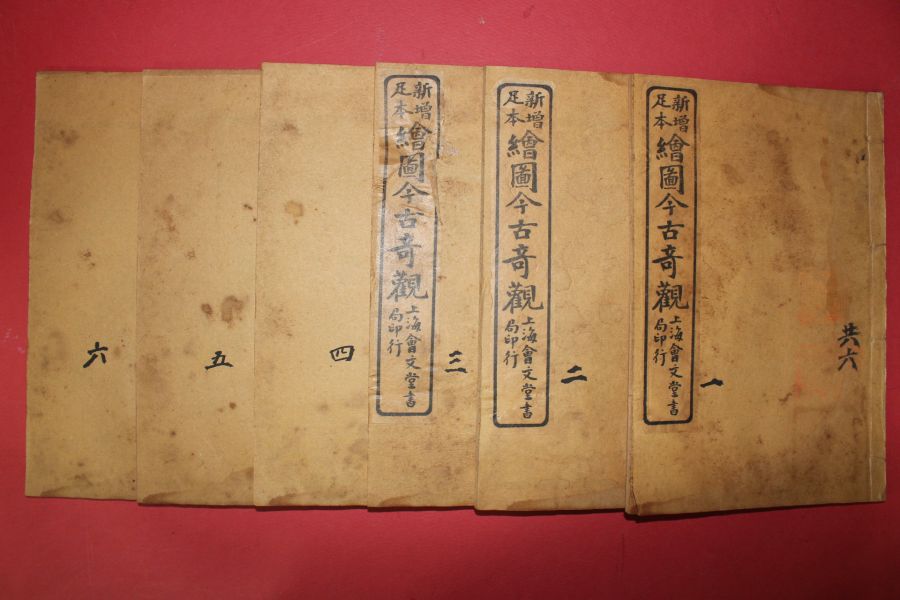 共六
一
新增
足本
繪圖今古奇觀
上海會文堂書
局印行
二
新增
足本
繪圖今古奇觀
上海會文堂書
局印行
三
新增
足本
繪圖今古奇觀
上海會文堂書
局印行
四
五
六